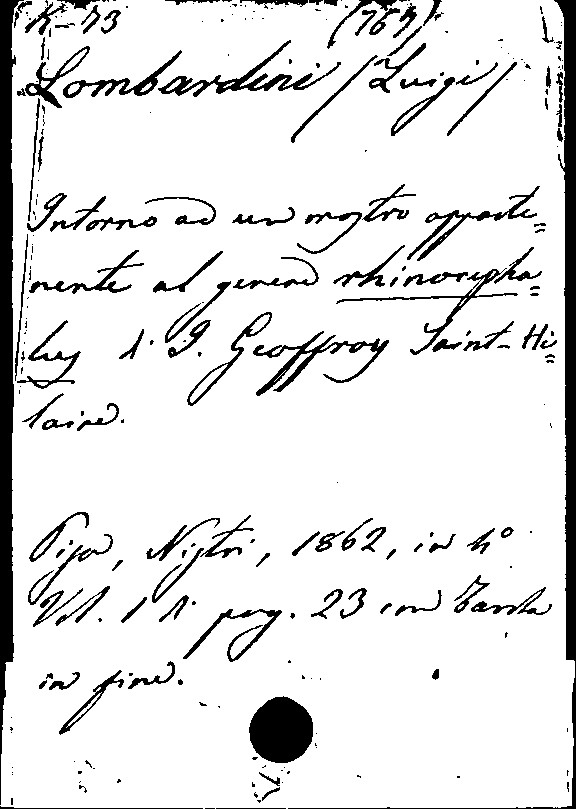 K-73 (767)
Lombardini (Luigi)
Intorno ad un mostro apparte=
nente al genere rhinocepha=
lus d. I. Geoffroy Saint-Hi=
laire.
Pisa, Nistri, 1862, in 4º
Vol. 1 di pag. 23 con Tavola
in fine.